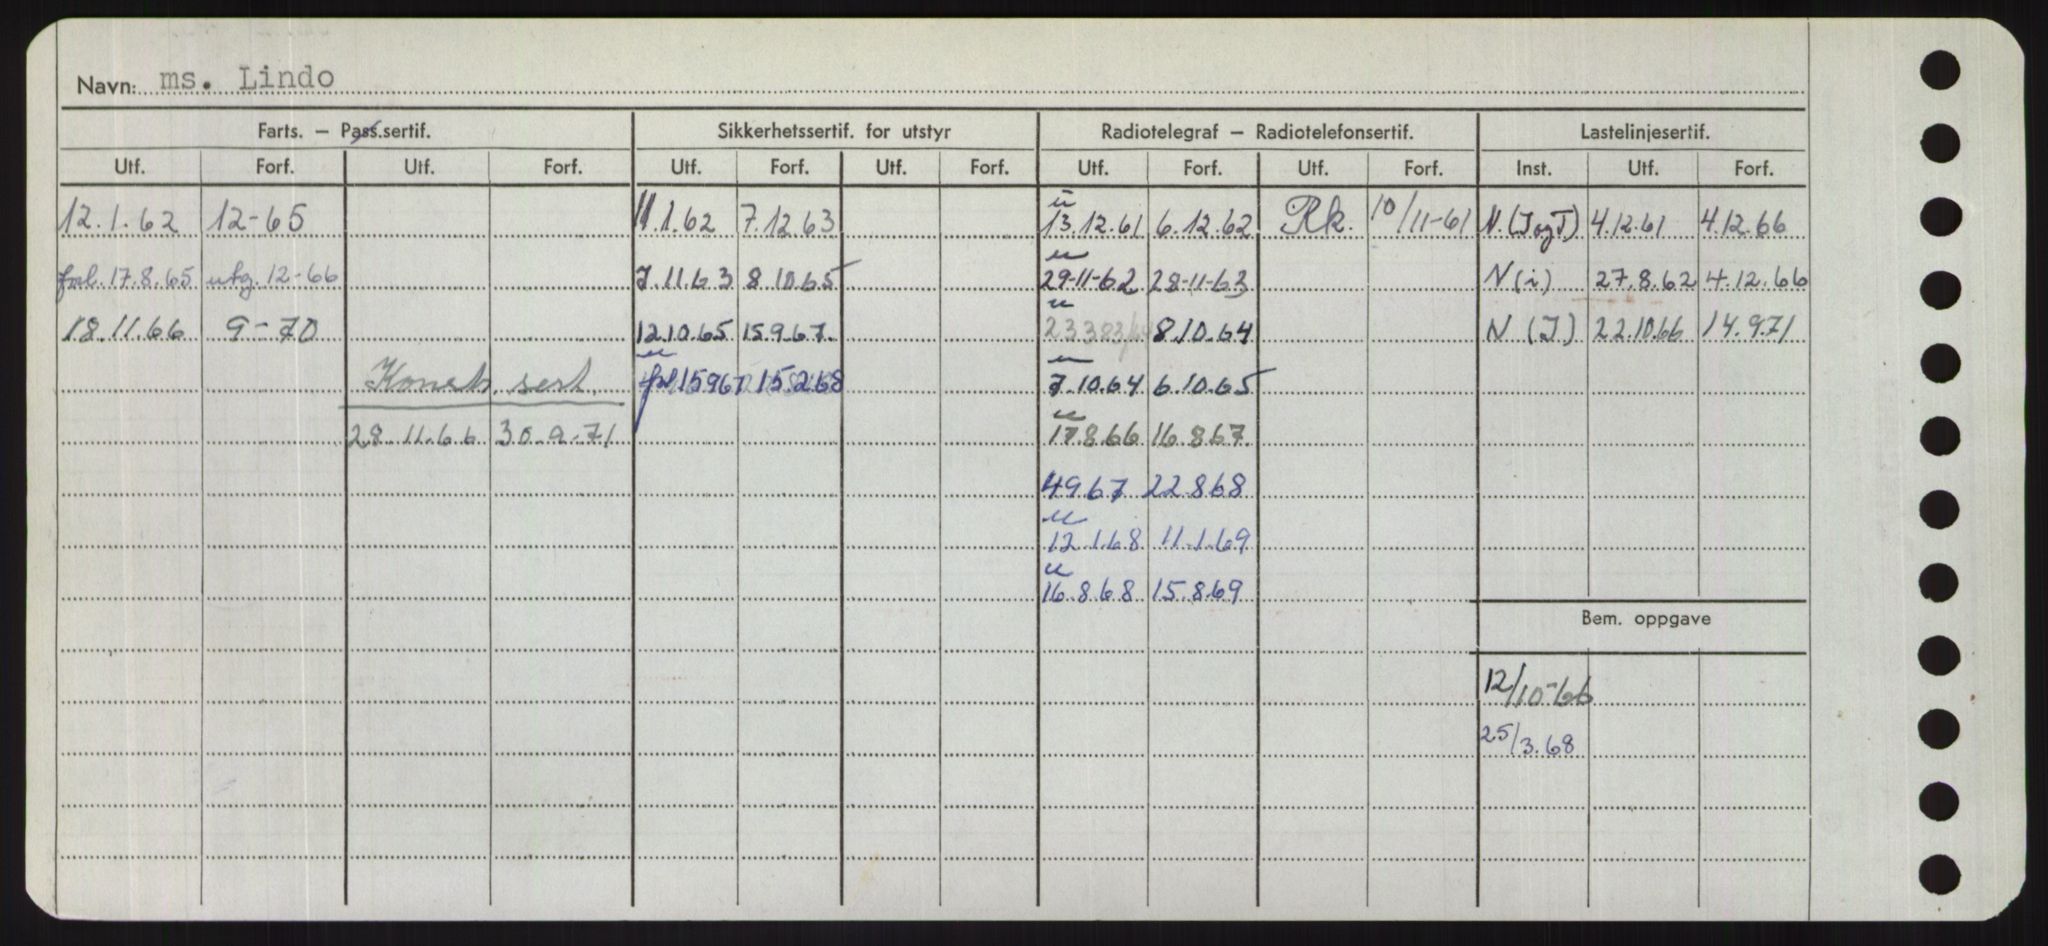 Navn: ms. Lindo
Farts. — Pass.sertif. Sikkerhetssertif. for utstyr Radiotelegraf — Radiotelefonsertif. Lastelinjesertif.
Utf. Forf. Utf. Forf. Utf. Forf. Utf. Forf. Utf. Forf. Utf. Forf. Inst. Utf. Forf.
u
12.1.62 12-65 11.1.62 7.12.63 13.12.61 6.12.62 Rk. 10/11-61 N.(I og T) 4.12.61 4.12.66
u
forl. 17.8.65 utg. 12-66 7.11.63 8.10.65 29-11-62 28-11-63 N (i) 27.8.62 4.12.66
u
18.11.66 9-70 12.10.65 15.9.67. 8.10.64 N (I) 22.10.66 14.9.71
u u
Konstr. sert. forl 15.9.67 15.2.68 7.10.64 6.10.65
u
28.11.66 30.9.71 17.8.66 16.8.67.
4.9.67 22.8.68
u
12.1.68 11.1.69
u
16.8.68 15.8.69
Bem. oppgave
12/10-66
25/3.68